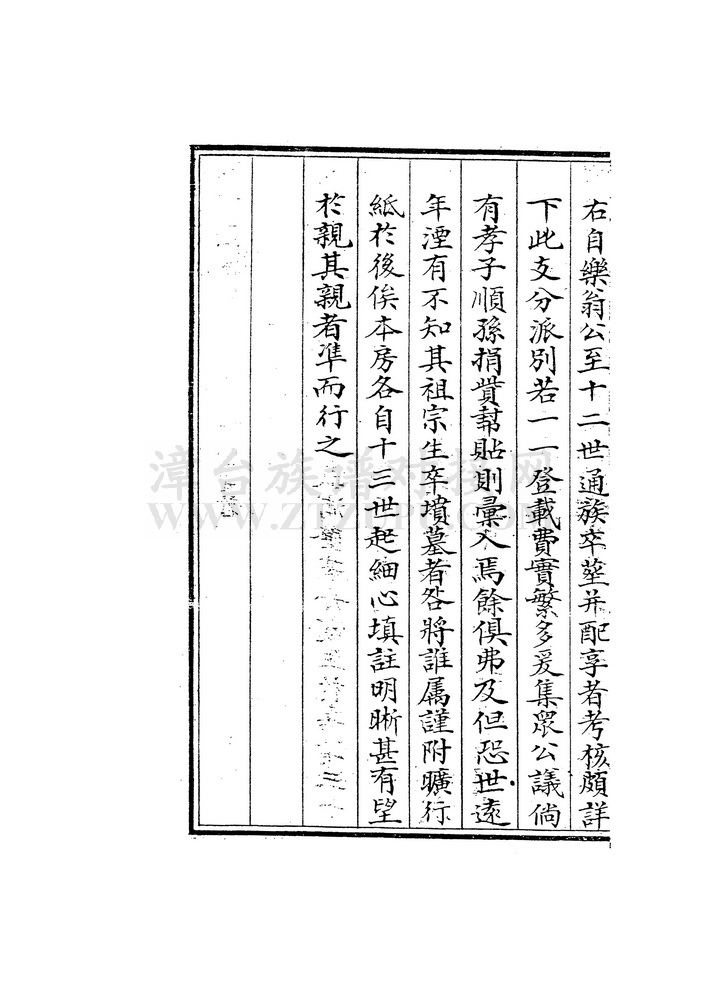 右自樂翁公至十二世通族卒塟并配享者考核頗詳
下此支分派別若一一登載費實繁多爰集眾公議倘
有孝子順孫捐貲幇貼則彙入焉餘俱弗及但恐世遠
年湮有不知其祖宗生卒墳墓者咎將誰属謹附曠行
紙於後俟本房各自十三世起細心填註明晰甚有望
於親其親者凖而行之
漳台族谱对接网
WWW.ZTZPDJ.COM